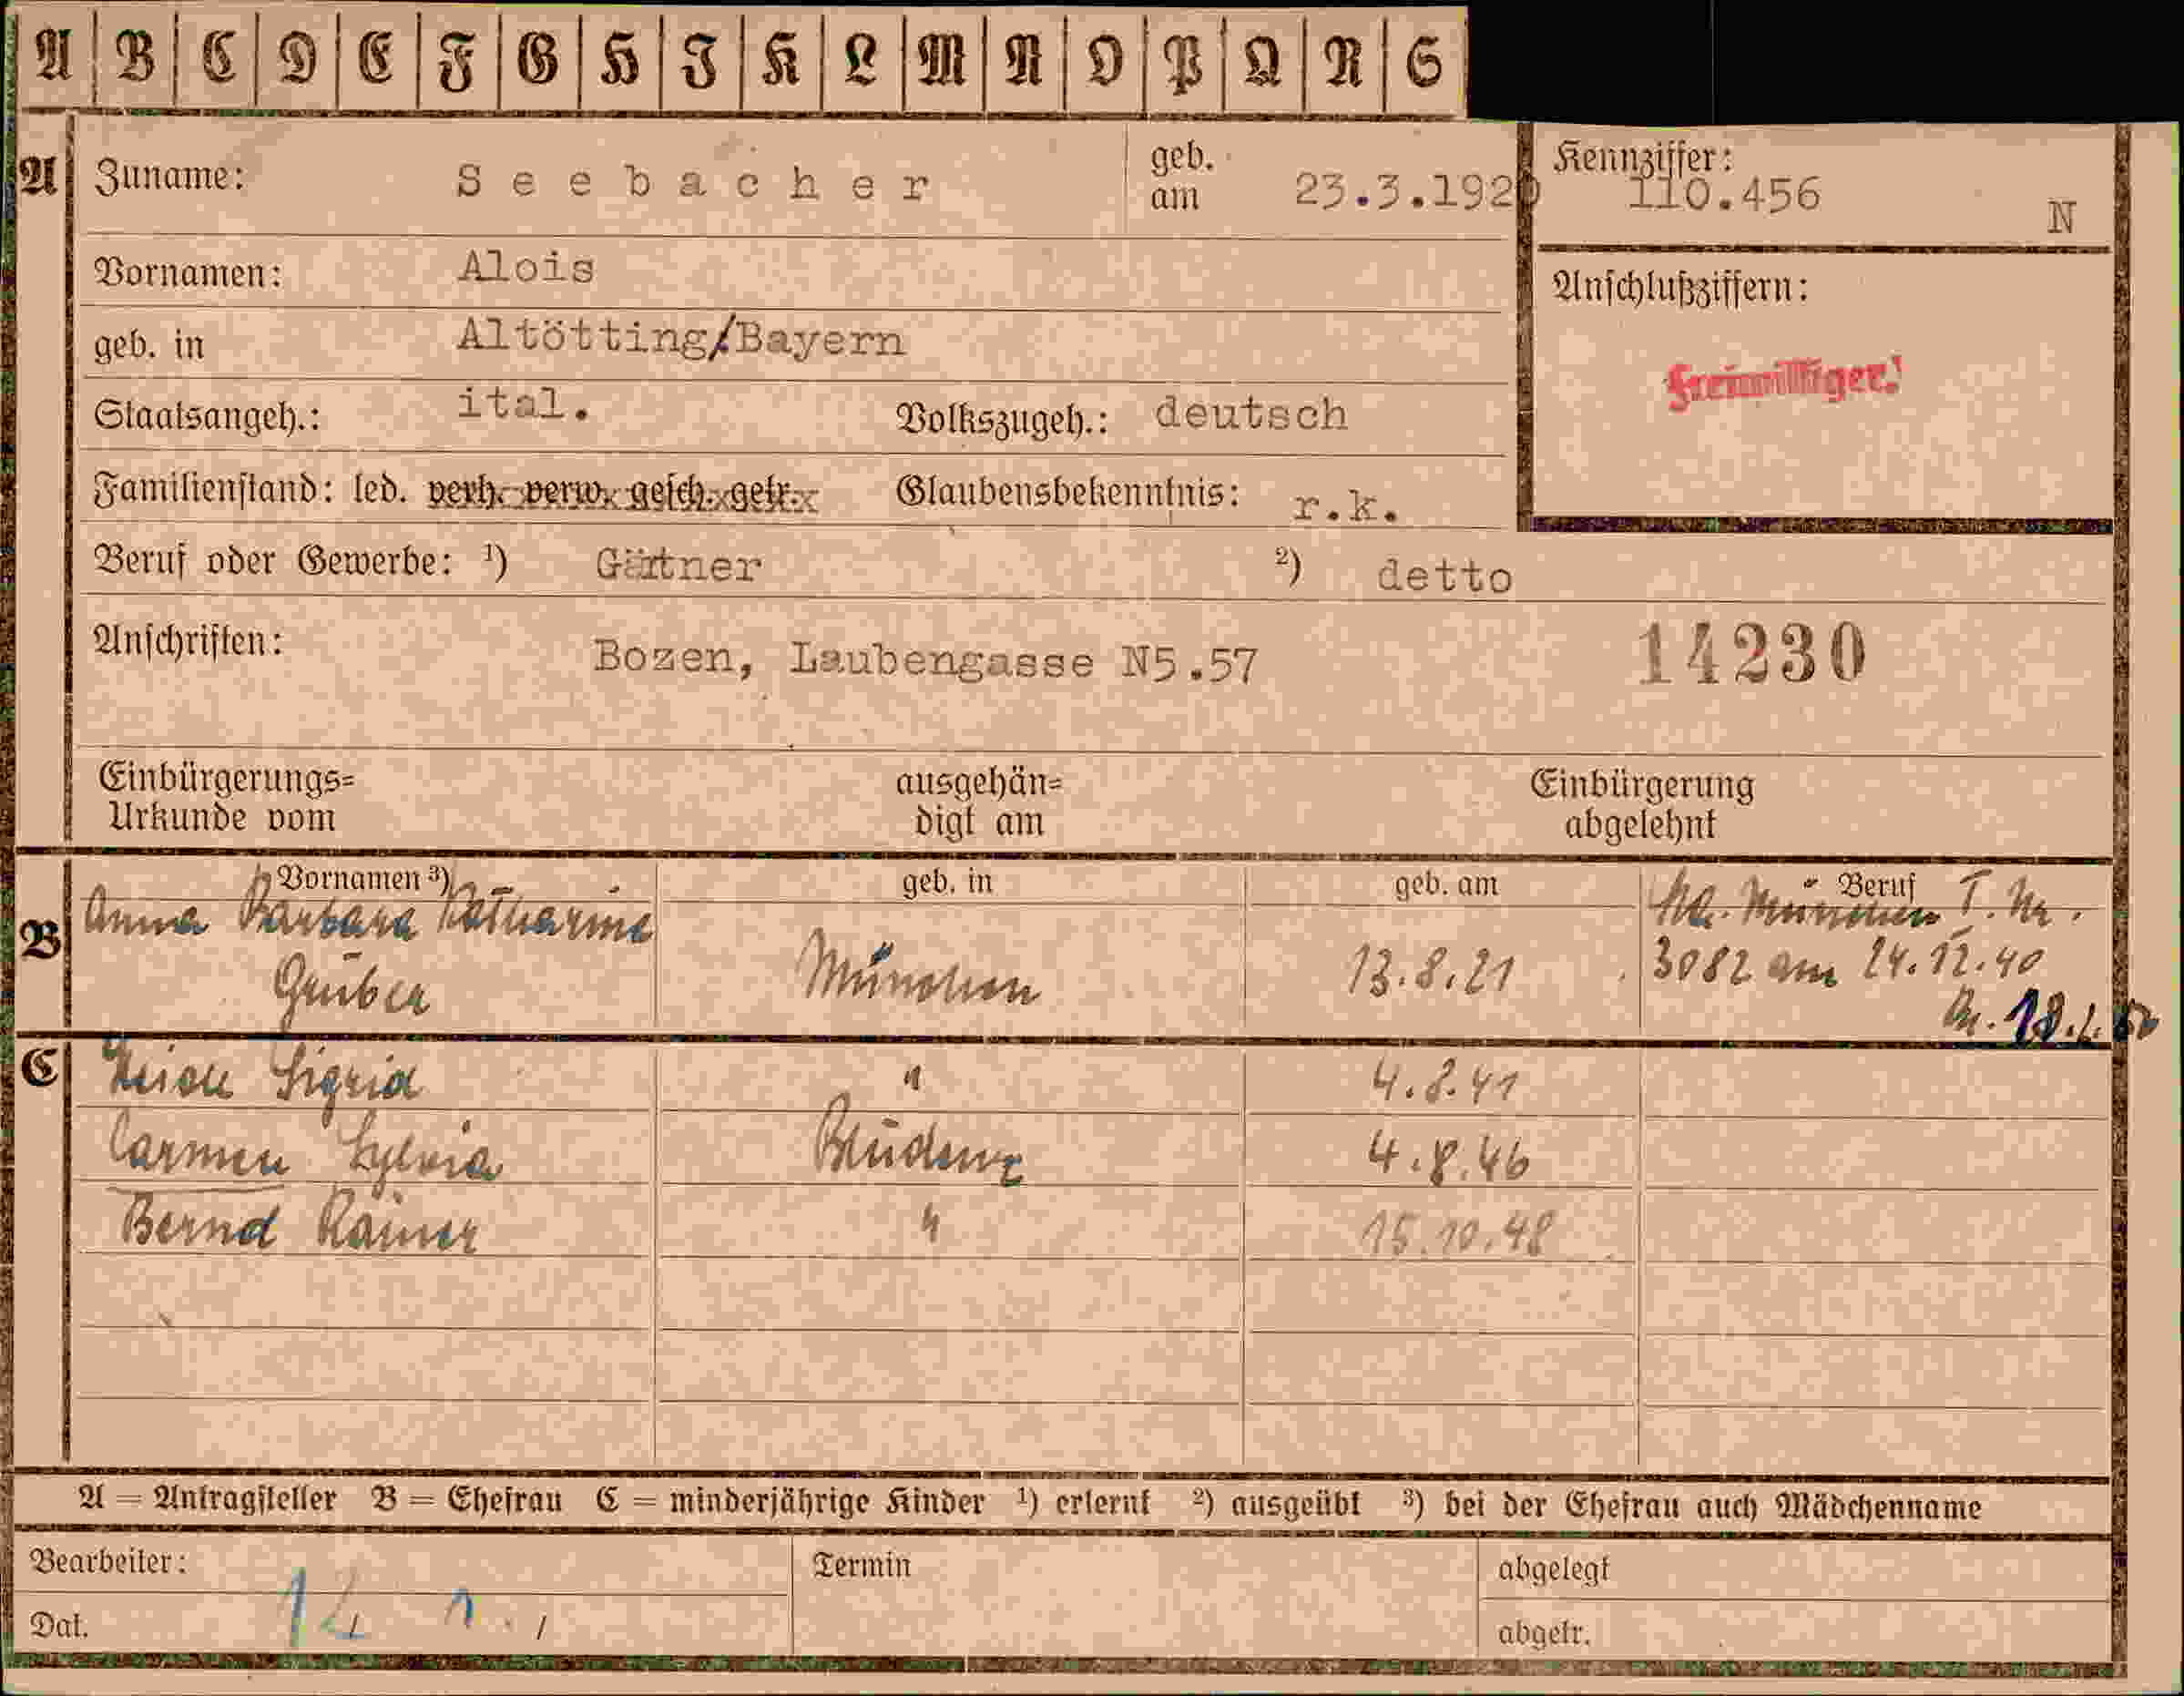 A B C D E F G H I K L M N O P Q R S
A Zuname: Seebacher geb. am 23.3.1920 Kennziffer: 110.456 N
Vornamen: Alois Anschlußziffern:
geb. in Altötting/Bayern Freiwilliger!
Staatsangeh.: ital. Volkszugeh.: deutsch
Familienstand: led. verh. verw. gesch. getr. Glaubensbekenntnis: r.k.
Beruf oder Gewerbe: ¹) Gärtner ²) detto
Anschriften: Bozen, Laubengasse N5.57 14230
Einbürgerungs= ausgehän= Einbürgerung
Urkunde vom digt am abgelehnt
Vornamen ³) geb. in geb. am Beruf
B Anna Barbara Katharina München T. Nr.
Gruber München 13.8.21 3082 am 24.12.40
C Sigrid " 4.8.41
Carmen Sylvia Bludenz 4.8.46
Bernd Rainer " 15.10.48
A = Antragsteller B = Ehefrau C = minderjährige Kinder ¹) erlernt ²) ausgeübt ³) bei der Ehefrau auch Mädchenname
Bearbeiter: Termin abgelegt
Dat. abgetr.